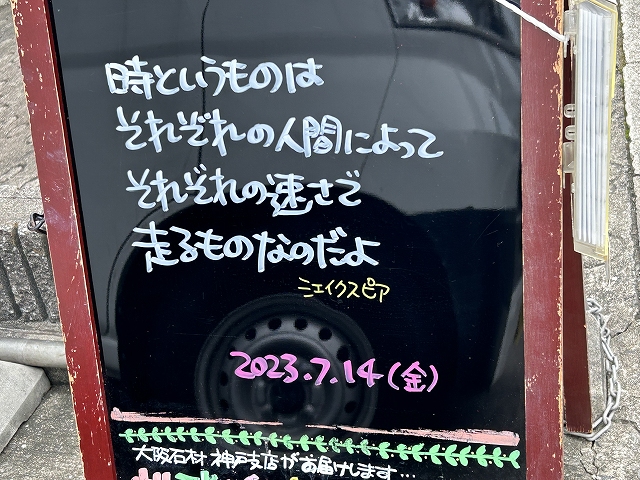 時というものは
それぞれの人間によって
それぞれの速さで
走るものなのだよ
シェイクスピア
2023.7.14(金)
大阪石材 神戸支店がお届けします…